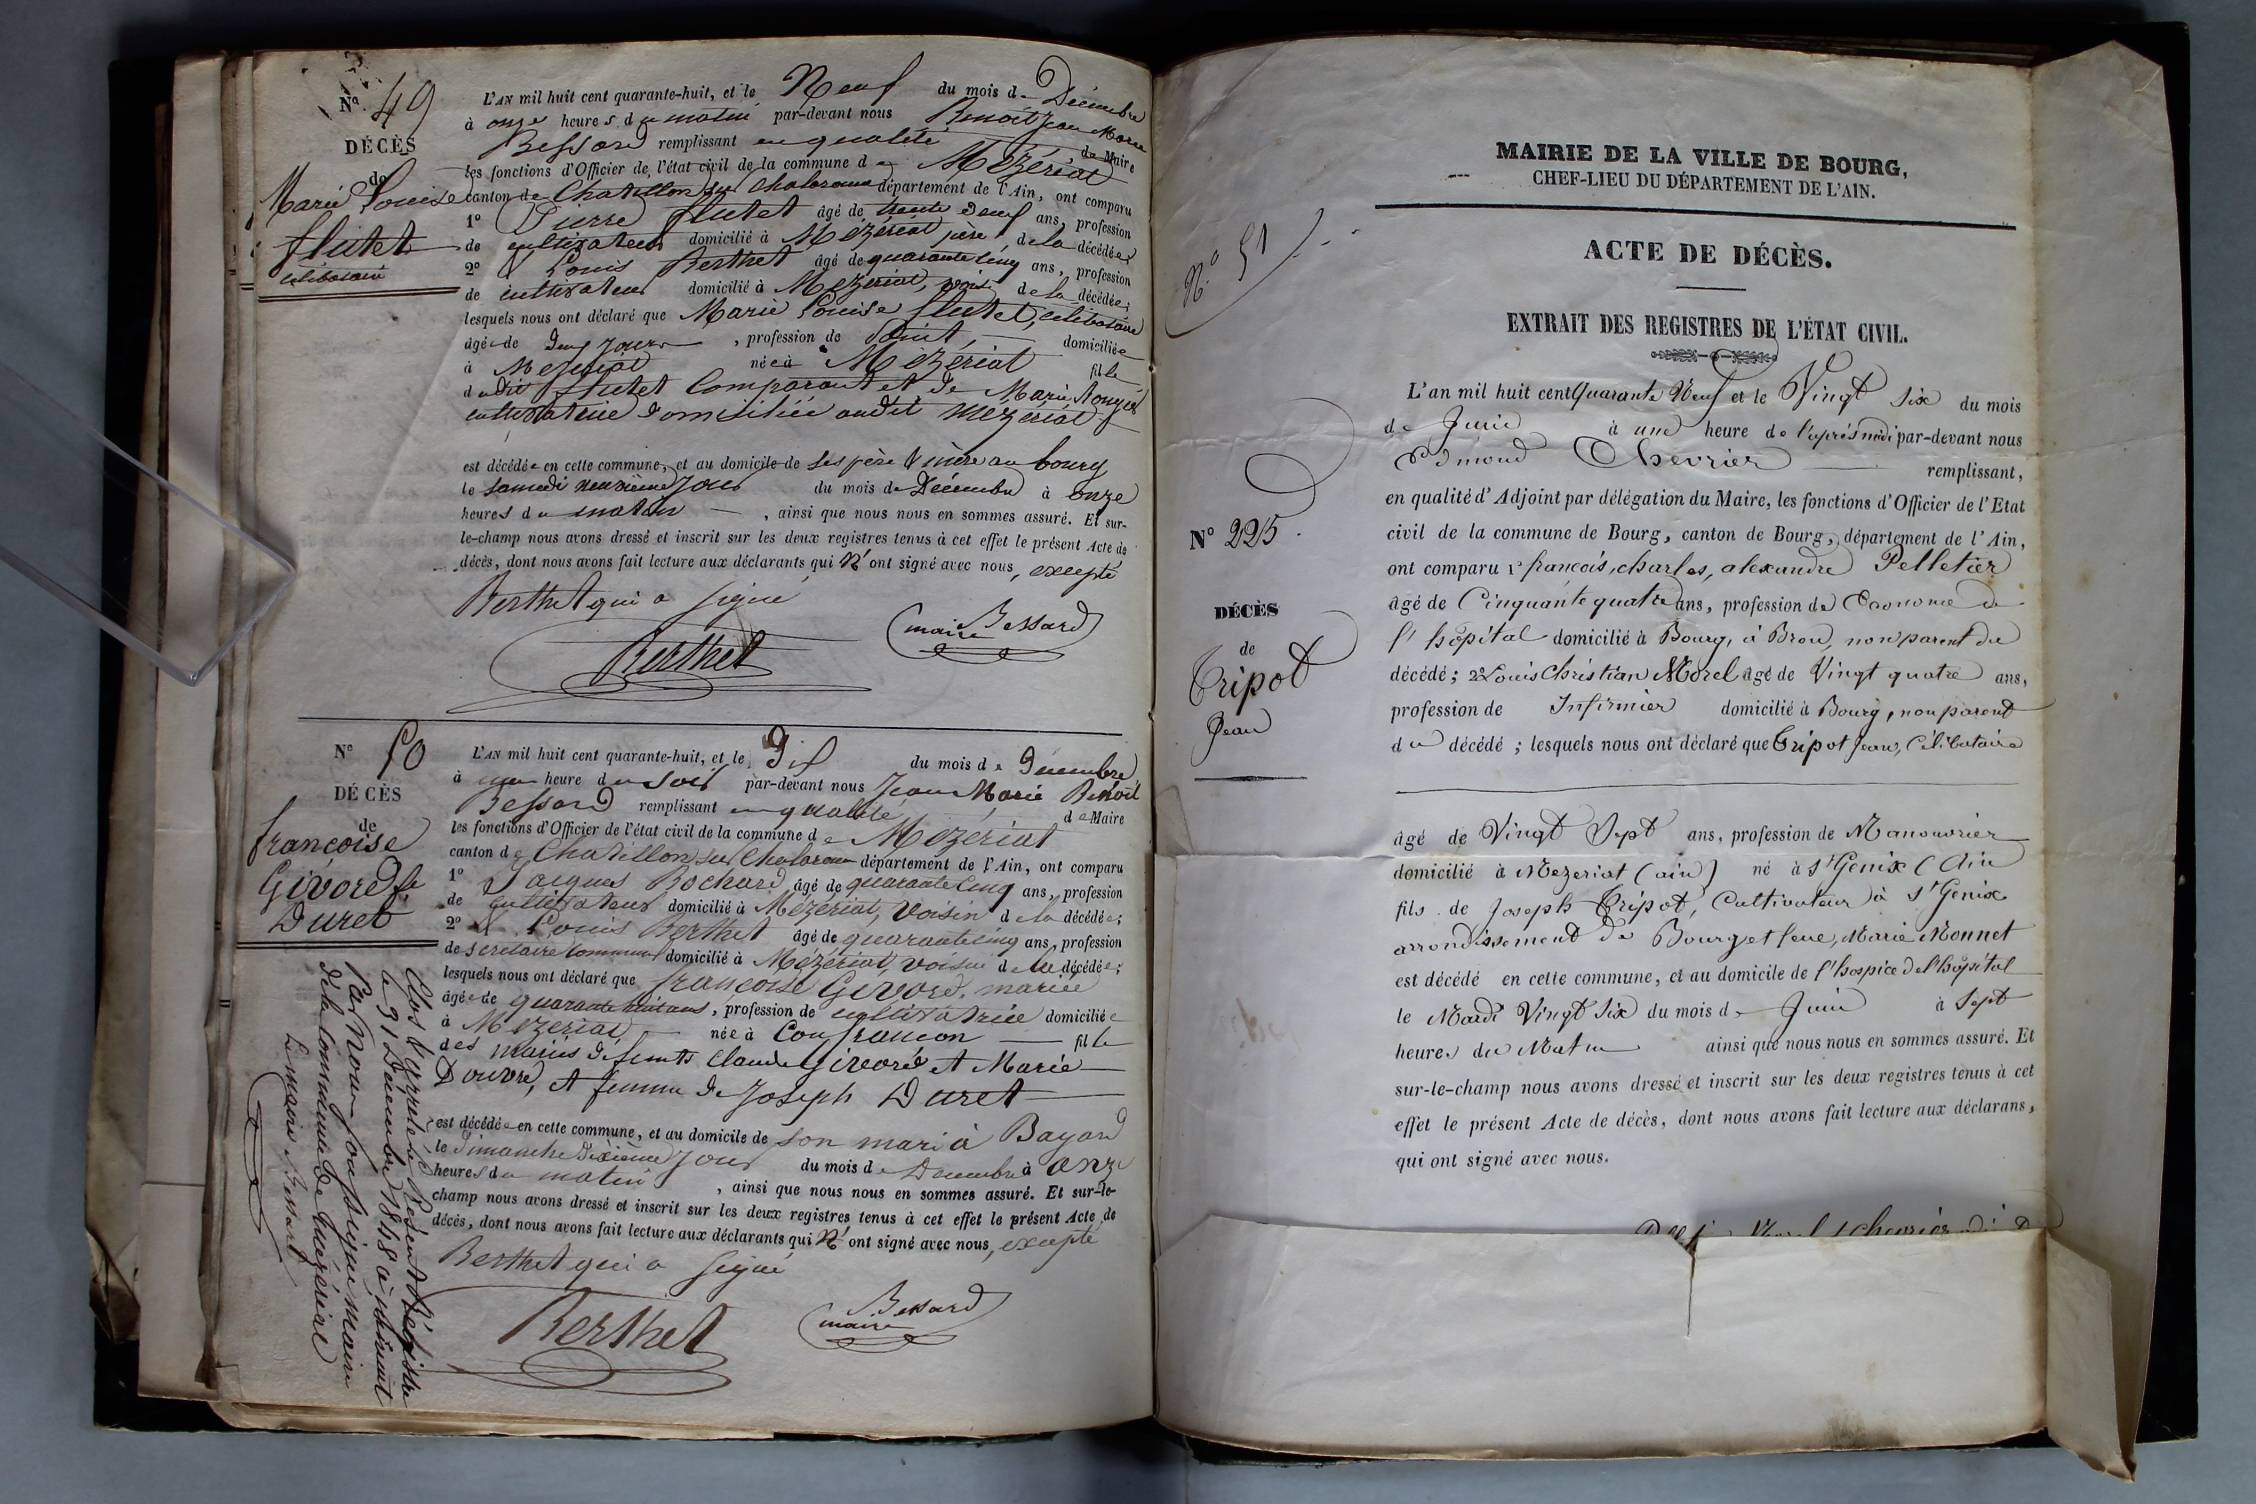 N° 49
DÉCÈS
de
Marie Louise
flutet
célibataire
L'AN mil huit cent quarante-huit, et le Neuf du mois de Décembre
à onze heures du matin par-devant nous Benoit Jean Marie
Bessard remplissant en qualité de Maire
les fonctions d'Officier de l'état civil de la commune de Mézériat
canton de Chatillon sur Chalaronne département de l'Ain, ont comparu
1° Pierre flutet âgé de trente neuf ans, profession
de cultivateur domicilié à Mézériat père de la décédée
2° & Louis Berthet âgé de quarante cinq ans, profession
de cultivateur domicilié à Mézériat, voisin de la décédée;
lesquels nous ont déclaré que Marie Louise flutet, célibataire
âgée de deux jours , profession de domiciliée
à Mézériat née à Mézériat fille
dudit flutet Comparant et de Marie
cultivatrice domiciliée audit Mézériat
est décédée en cette commune, et au domicile de ses père & mère au bourg
le samedi neuvième jour du mois de Décembre à onze
heures du matin , ainsi que nous nous en sommes assuré. Et sur-
le-champ nous avons dressé et inscrit sur les deux registres tenus à cet effet le présent Acte de
décès, dont nous avons fait lecture aux déclarants qui N'ont signé avec nous, excepté
Berthet qui a signé
Berthet
Bessard
maire
N° 50
DÉCÈS
de
françoise
Givord fe
Duret
L'AN mil huit cent quarante-huit, et le Dix du mois de Décembre
à une heure du soir par-devant nous Jean Marie Benoit
Bessard remplissant en qualité de Maire
les fonctions d'Officier de l'état civil de la commune de Mézériat
canton de Chatillon sur Chalaronne département de l'Ain, ont comparu
1° Jacques Bochard âgé de quarante cinq ans, profession
de cultivateur domicilié à Mézériat, voisin de la décédée;
2° & Louis Berthet âgé de quarante cinq ans, profession
de secretaire commun domicilié à Mézériat, voisin de la décédée;
lesquels nous ont déclaré que françoise Givord, mariée
âgée de quarante huit ans, profession de cultivatrice domiciliée
à Mézériat née à Confrançon fille
des mariés défunts Claude Givord et Marie
Douvre, et femme de Joseph Duret
est décédée en cette commune, et au domicile de son mari à Bayard
le Dimanche Dixième jour du mois de Décembre à onze
heures du matin , ainsi que nous nous en sommes assuré. Et sur-le-
champ nous avons dressé et inscrit sur les deux registres tenus à cet effet le présent Acte de
décès, dont nous avons fait lecture aux déclarants qui N'ont signé avec nous, excepté
Berthet qui a signé
Berthet
Bessard
maire
Clos & arrêté le Présent Régistre
le 31 Décembre 1848 à
Par Nous Soussigné maire
de la Commune de Mézériat
Le maire Bessard
N° 51
MAIRIE DE LA VILLE DE BOURG,
CHEF-LIEU DU DÉPARTEMENT DE L'AIN.
ACTE DE DÉCÈS.
EXTRAIT DES REGISTRES DE L'ÉTAT CIVIL.
N° 225.
DÉCÈS
de
Tripot
Jean
L'an mil huit cent Quarante Neuf et le Vingt six du mois
de Juin à une heure de l'après midi par-devant nous
Edmond Chevrier remplissant,
en qualité d'Adjoint par délégation du Maire, les fonctions d'Officier de l'Etat
civil de la commune de Bourg, canton de Bourg, département de l'Ain,
ont comparu 1° françois, charles, alexandre Pelletier
âgé de Cinquante quatre ans, profession de Econome de
l'hôpital domicilié à Bourg, à Brou, non parent du
décédé; 2° Louis Christian Morel âgé de Vingt quatre ans,
profession de Infirmier domicilié à Bourg, non parent
du décédé; lesquels nous ont déclaré que Tripot Jean, Célibataire
âgé de Vingt Sept ans, profession de Manouvrier
domicilié à Mezeriat (ain) né à St Genix (Ain
fils de Joseph Tripot, Cultivateur à St Genix
arrondissement de Bourg et feue, Marie Monnet
est décédé en cette commune, et au domicile de l'hospice de l'hôpital
le Mardi Vingt Six du mois de Juin à Sept
heures du Matin ainsi que nous nous en sommes assuré. Et
sur-le-champ nous avons dressé et inscrit sur les deux registres tenus à cet
effet le présent Acte de décès, dont nous avons fait lecture aux déclarans,
qui ont signé avec nous.